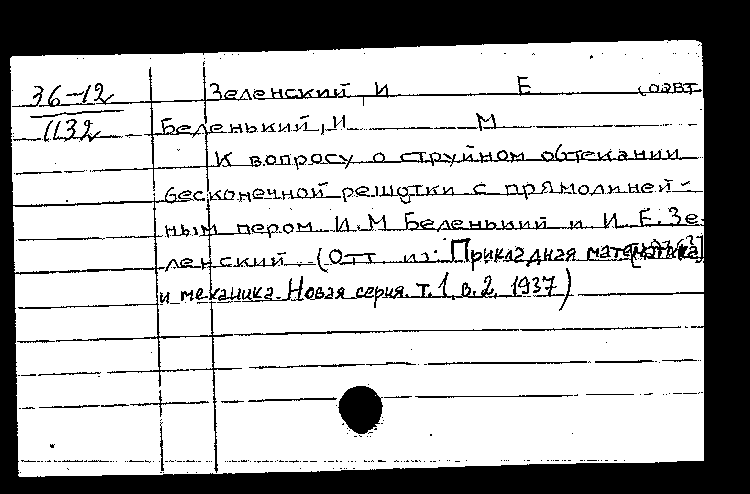 36-12
1132
Зеленский И Е соавт
Беленький, И М
К вопросу о струйном обтекании
бесконечной решотки с прямолиней-
ным пером И.М Беленький и И.Е.Зе-
ленский. (Отт из: Прикладная математика
и механика. Новая серия. т.1, в.2, 1937)